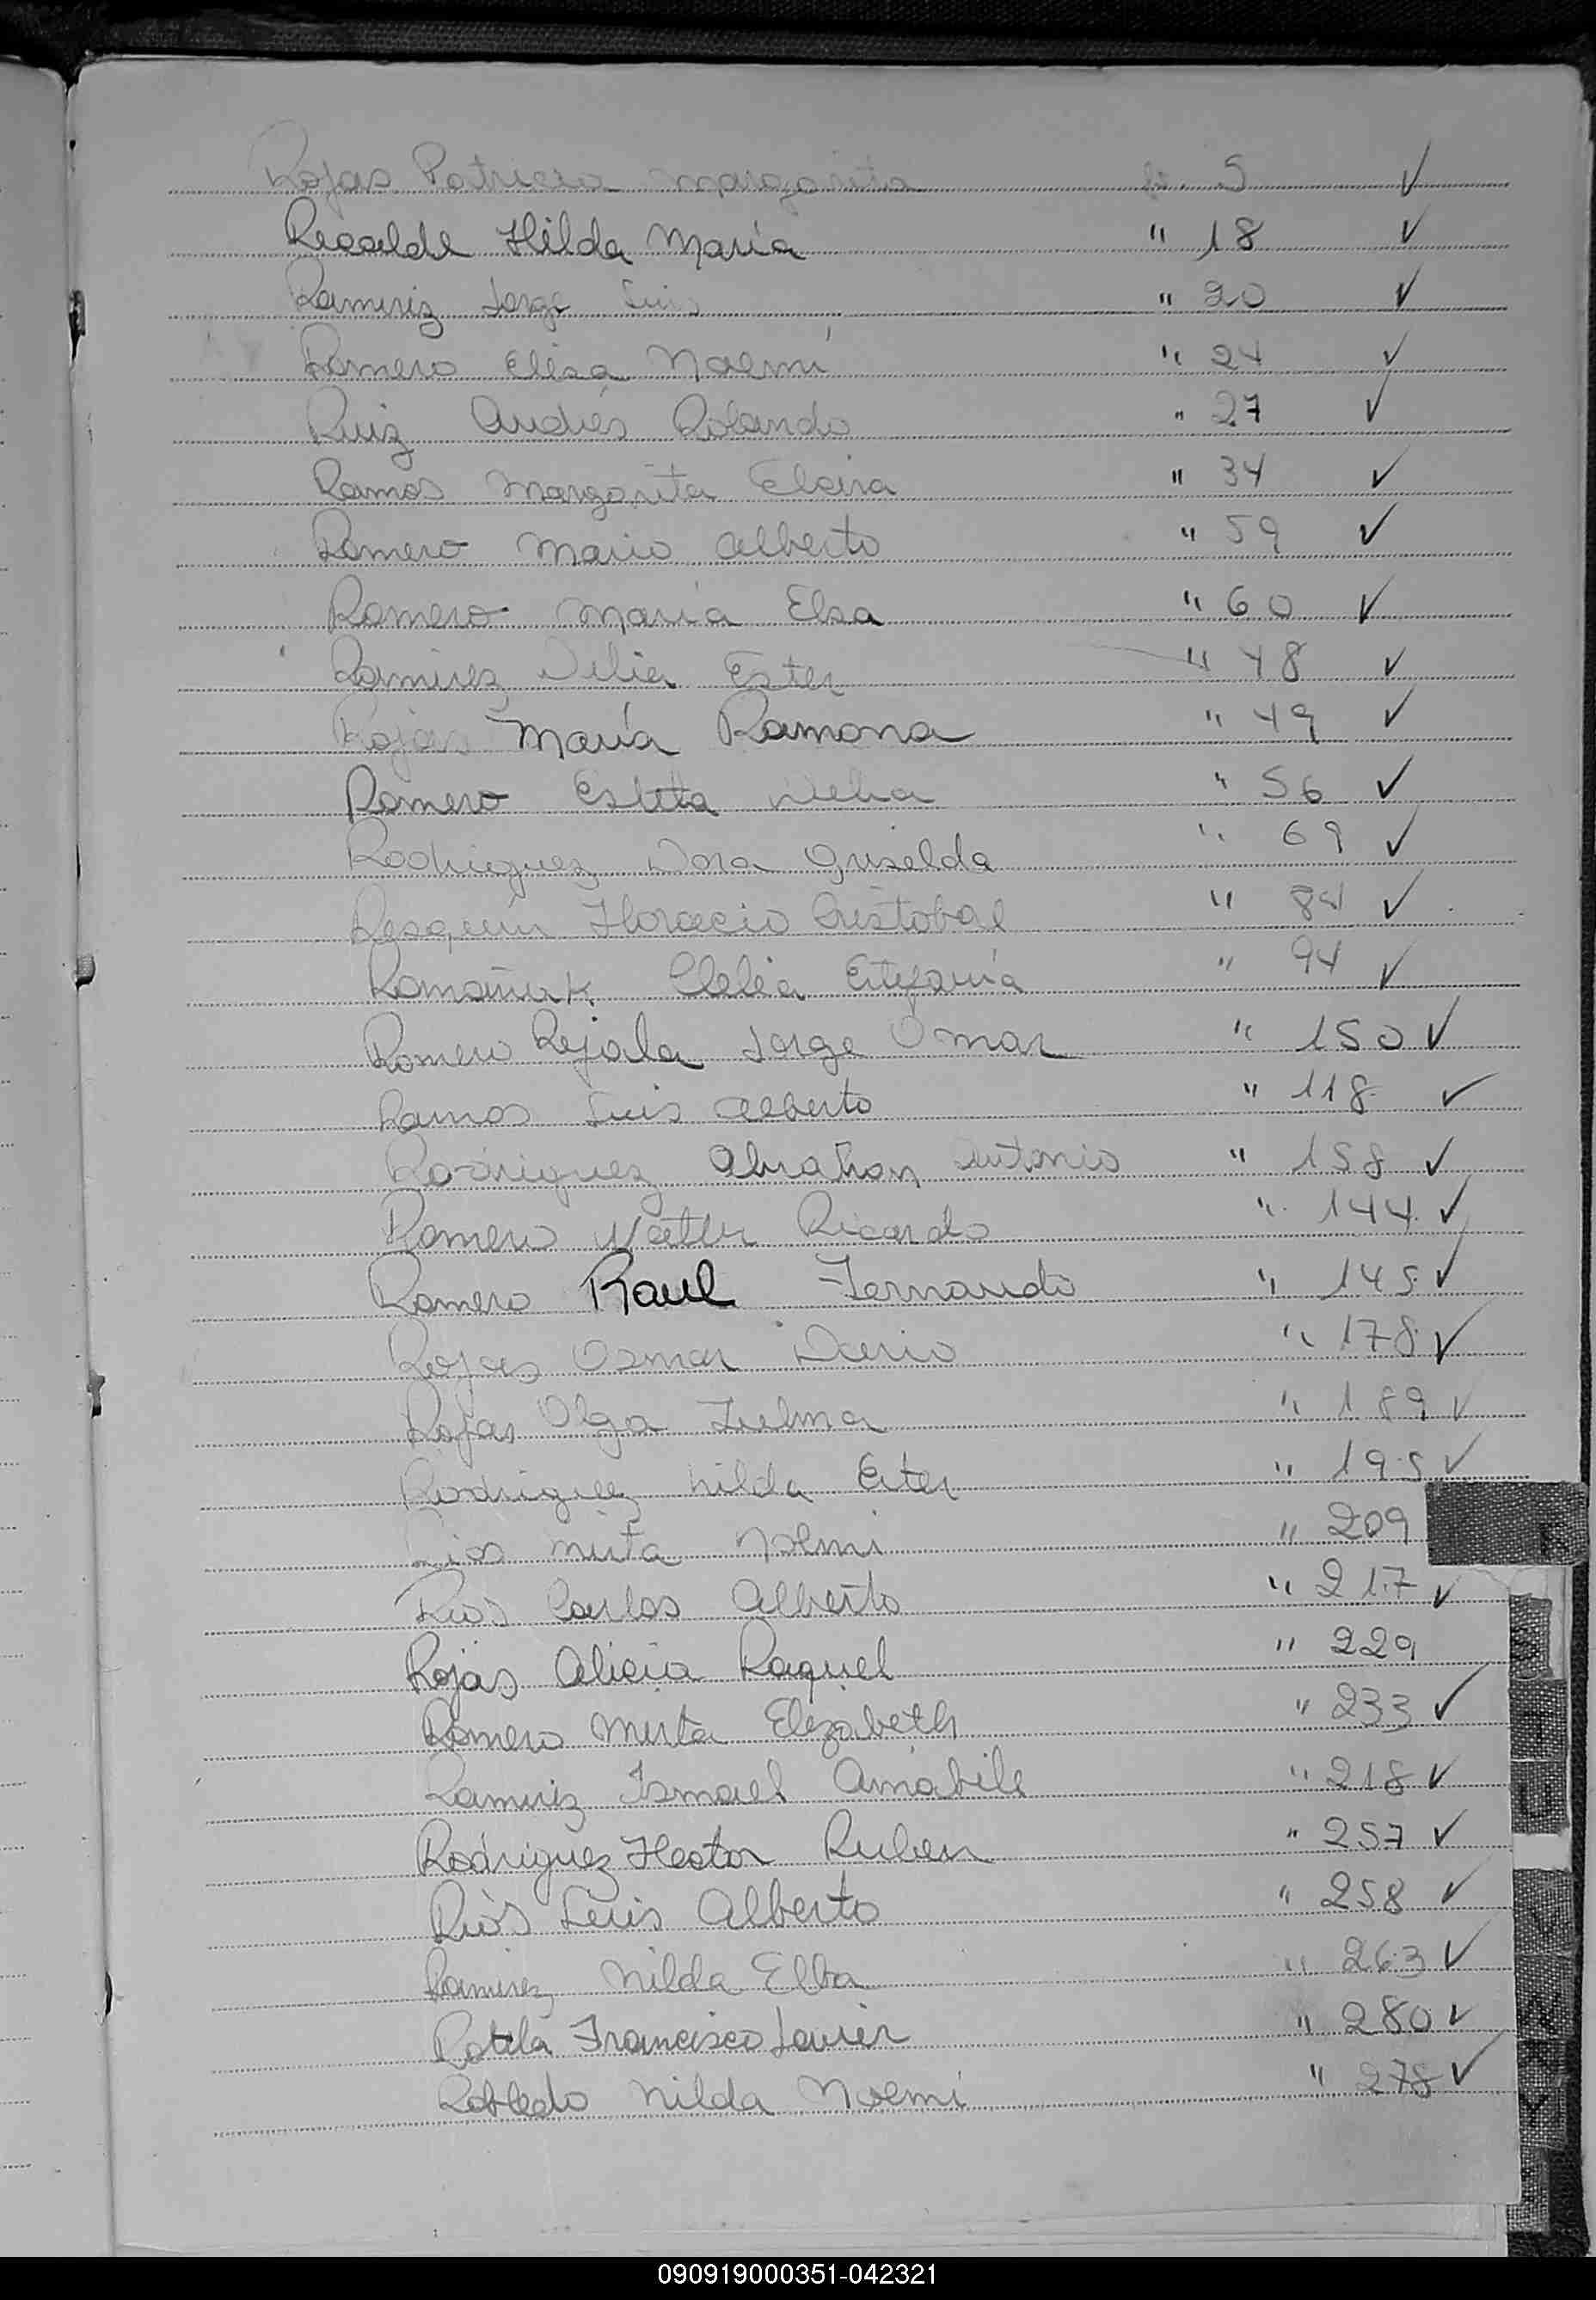 Rojas Patricia Margarita fs. 5 ✓
Recalde Hilda María " 18 ✓
Ramiriz Jorge Luis " 20 ✓
Romero Elisa Noemí " 24 ✓
Ruiz Andrés Rolando " 27 ✓
Ramos Margarita Elvira " 34 ✓
Romero Mario Alberto " 59 ✓
Romero María Elsa " 60 ✓
Ramirez Delia Ester " 48 ✓
Rojas María Ramona " 49 ✓
Romero Delia " 56 ✓
Rodriguez Dora Griselda " 69 ✓
Resquin Horacio Cristobal " 84 ✓
Romañuk Clelia Estefanía " 94 ✓
Romero Rejala Jorge Omar " 150 ✓
Ramos Luis Alberto " 118 ✓
Rodriguez Abrahan Antonio " 158 ✓
Romero Ricardo " 144 ✓
Romero Raul Fernando " 145 ✓
Rojas Osmar Dario " 178 ✓
Rojas Olga Zulma " 189 ✓
Rodriguez Nilda Ester " 195 ✓
Rios Mirta Noemi " 209
Rios Carlos Alberto " 217 ✓
Rojas Alicia Raquel " 229
Romero Mirta Elizabeth " 233 ✓
Ramiriz Ismael Amabile " 218 ✓
Rodriguez Hector Ruben " 257 ✓
Rios Luis Alberto " 258 ✓
Ramirez Nilda Elba " 263 ✓
Rotela Francisco Javier " 280 ✓
Robledo Nilda Noemí " 278 ✓
090919000351-042321